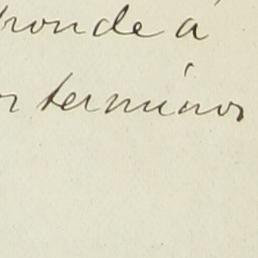 ronde á
terminos